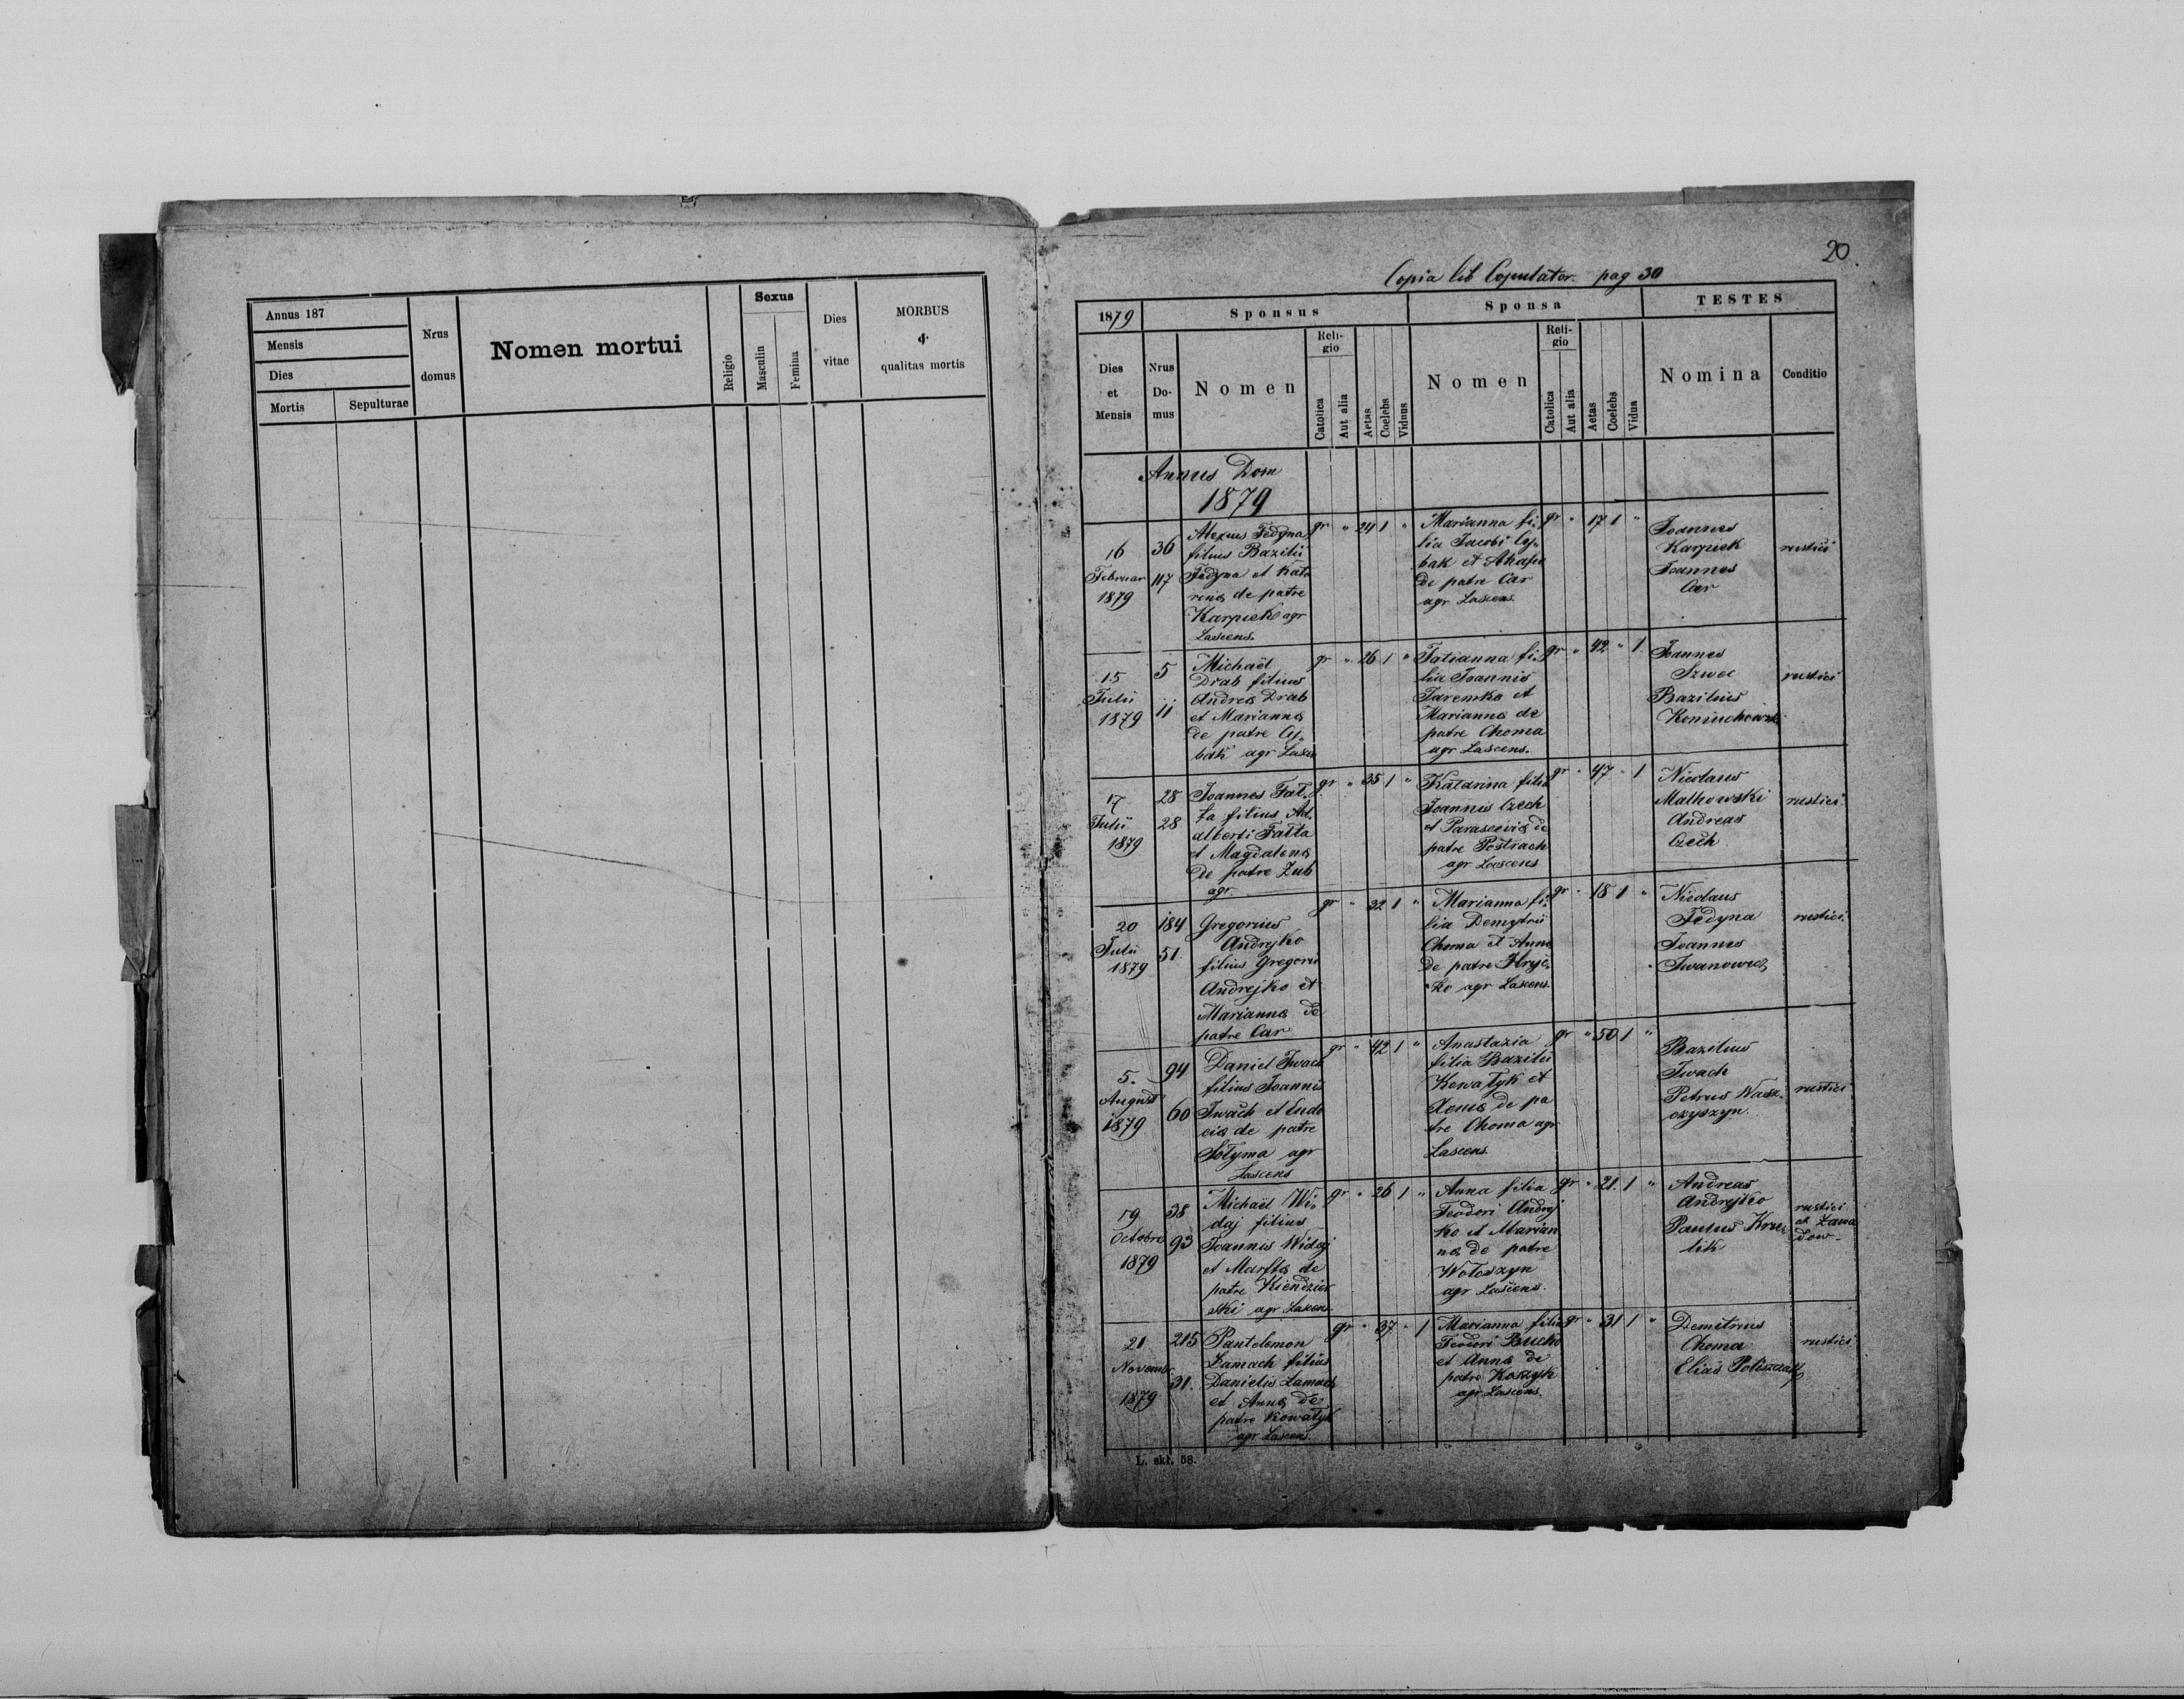 Annus 187
Mensis
Dies
Mortis
Sepulturae
Nrus
domus
Nomen mortui
Religio
Sexus
Masculin
Femina
Dies
vitae
MORBUS
&
qualitas mortis
20.
Copia lib Copulator. pag 30
1879
Sponsus
Sponsa
TESTES
Dies
et
Mensis
Nrus
Do-
mus
Nomen
Reli-
gio
Catolica
Aut alia
Aetas
Coelebs
Viduus
Nomen
Reli-
gio
Catolica
Aut alia
Aetas
Coelebs
Vidua
Nomina
Conditio
Annus Dom
1879
16
Februar
1879
36
117
Alexius Fedyna
filius Bazilii
Fedyna et Kata
rina de patre
Karpiek agr
Lascens.
gr " 24 1 "
Marianna fi-
lia Jacobi Cy-
bak et
de patre Car
agr Lascens.
gr " 17 1 "
Joannes
Karpiek
Joannes
Car
rustici
15
Julii
1879
5
11
Michaël
Drab filius
Andrea Drab
et Marianna
de patre Cy-
bak agr Lascen
gr " 26 1 "
Tatianna fi-
lia Joannis
Jaremko et
Marianna de
patre Choma
agr Lascens.
gr " 42 " 1
Joannes
Szwec
Bazilius
Koniuchowski
rustici
17
Julii
1879
28
28
Joannes Fal-
ta filius Ad-
alberti Falta
et Magdalena
de patre Zub
agr
gr " 35 1 "
Katarina filia
Joannis Czech
et Parascevia de
patre Postrach
agr Lascens
gr " 47 " 1
Nicolaus
Malkowski
Andreas
Czech.
rustici
20
Julii
1879
184
51
Gregorius
Andrejko
filius Gregorii
Andrejko et
Marianna de
patre Car
gr " 32 1 "
Marianna fi-
lia Demytrii
Choma et Anna
de patre Hryc-
ko agr Lascens.
gr " 18 1 "
Nicolaus
Fedyna
Joannes
Iwanowicz
rustici
5.
August
1879
94
60
Daniel Iwach
filius Joannis
Iwach et Eudo
cia de patre
Sołyma agr
Lascens
gr " 42 1 "
Anastazia
filia Bazilii
Kowałyk et
Xenia de pa
tre Choma agr
Lascens.
gr " 50 1 "
Bazilius
Iwach
Petrus Wasz-
czyszyn.
rustici
19
Octobre
1879
38
93
Michaël Wi-
daj filius
Joannis Widaj
et Martha de
patre Kiendzier
ski agr Lascen.
gr " 26 1 "
Anna filia
Teodori Andrej
ko et Marian
na de patre
Wołoszyn
agr Lascens.
gr " 21. 1 "
Andreas
Andrejko
Paulus Kru-
lik
rustici
et Zawa
dow
21
Novembr
1879
215
31.
Pantelemon
Łamach filius
Danielis Łamach
et Anna de
patre Kowałyk
agr Lascens.
gr " 37 " 1
Marianna filia
Teodori Bucko
et Anna de
patre Koszyk
agr Lascens.
gr " 31 1 "
Demitrius
Choma
Elias Poliszczak
rustici
L. skł. 58.